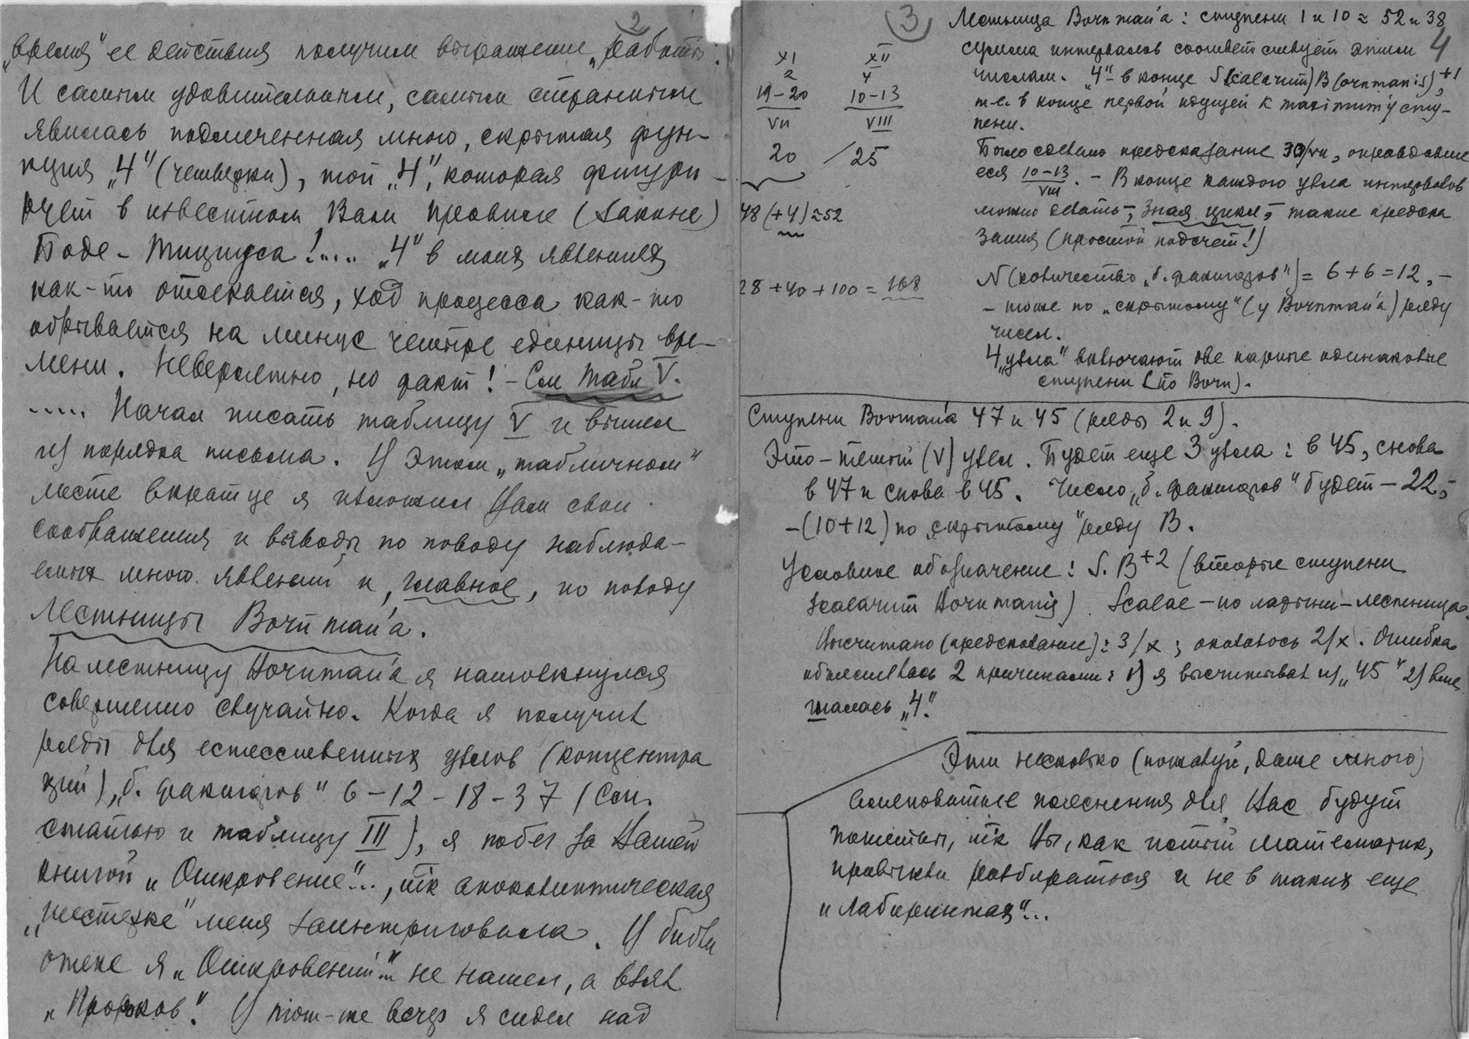 2
„время“ ее действия получим выражение „работы“.
И самым удивительным, самым странным
явилась подмеченная мною, скрытая функ-
ция „4“ (четверки), той „4“, которая фигури-
рует в известном Вам правиле (законе)
Боде - Тициуса!.... „4“ в моих явлениях
как-то отсекается, ход процесса как-то
обрывается на минус четыре единицы вре-
мени. Невероятно, но факт! - См табл V.
..... Начал писать таблицу V и вышел
из порядка письма. В этом „табличном“
месте вкратце я изложил Вам свои
соображения и выводы по поводу наблюда-
емых мною явлений и, главное, по поводу
Лестницы
На лестницу я натолкнулся
совершенно случайно. Когда я получил
ряды для естественных узлов (концентра
ций), „б. факторов“ 6-12-18-37 (См.
статью и таблицу III), я побег за Вашей
книгой „Откровение“..., тк апокалиптическая
„шестерка“ меня заинтриговала. В библи
отеке я „Откровений“ не нашел, а взял
„Пророков“. В тот-же вечер я сидел над
3
4
XI XII
2 4
19-20 10-13
VII VIII
20 / 25
48 (+4) = 52
28 + 40 + 100 = 168
Лестница : ступени 1 и 10 = 52 и 38
сумма интервалов соответствует этим
числам. „4“ - в конце +1,
т.е. в конце первой идущей к maximum'у сту-
пени.
Было сделано предсказание 30/VII, оправдавше
еся 10-13/VIII. - В конце каждого узла интервалов
можно делать -, зная цикл, - такие предска
зания (простой подсчет!)
N (количество „б. факторов“) = 6 + 6 = 12, -
- тоже по „скрытому“ (у ) ряду
чисел.
4 „узла“ включают две парные одинаковые
ступени
Ступени 47 и 45 (ряды 2 и 9).
Это - пятый (V) узел. Будет еще 3 узла: в 45, снова
в 47 и снова в 45. Число „б. факторов“ будет - 22, -
- (10+12) по „скрытому“ ряду В.
Условное обозначение: S. B+2 (вторые ступени
Scalarum ). Scalae - по латыни - лестница.
Высчитано (предсказание): 3/X; оказалось 2/X. Ошибка
объяснялась 2 причинами: 1) я высчитывал из „45“ 2) вме
шалась „4“.
Эти несколько (пожалуй, даже много)
пояснения для Вас будут
понятны, тк Вы, как истый математик,
привыкли разбираться и не в таких еще
„лабиринтах“...